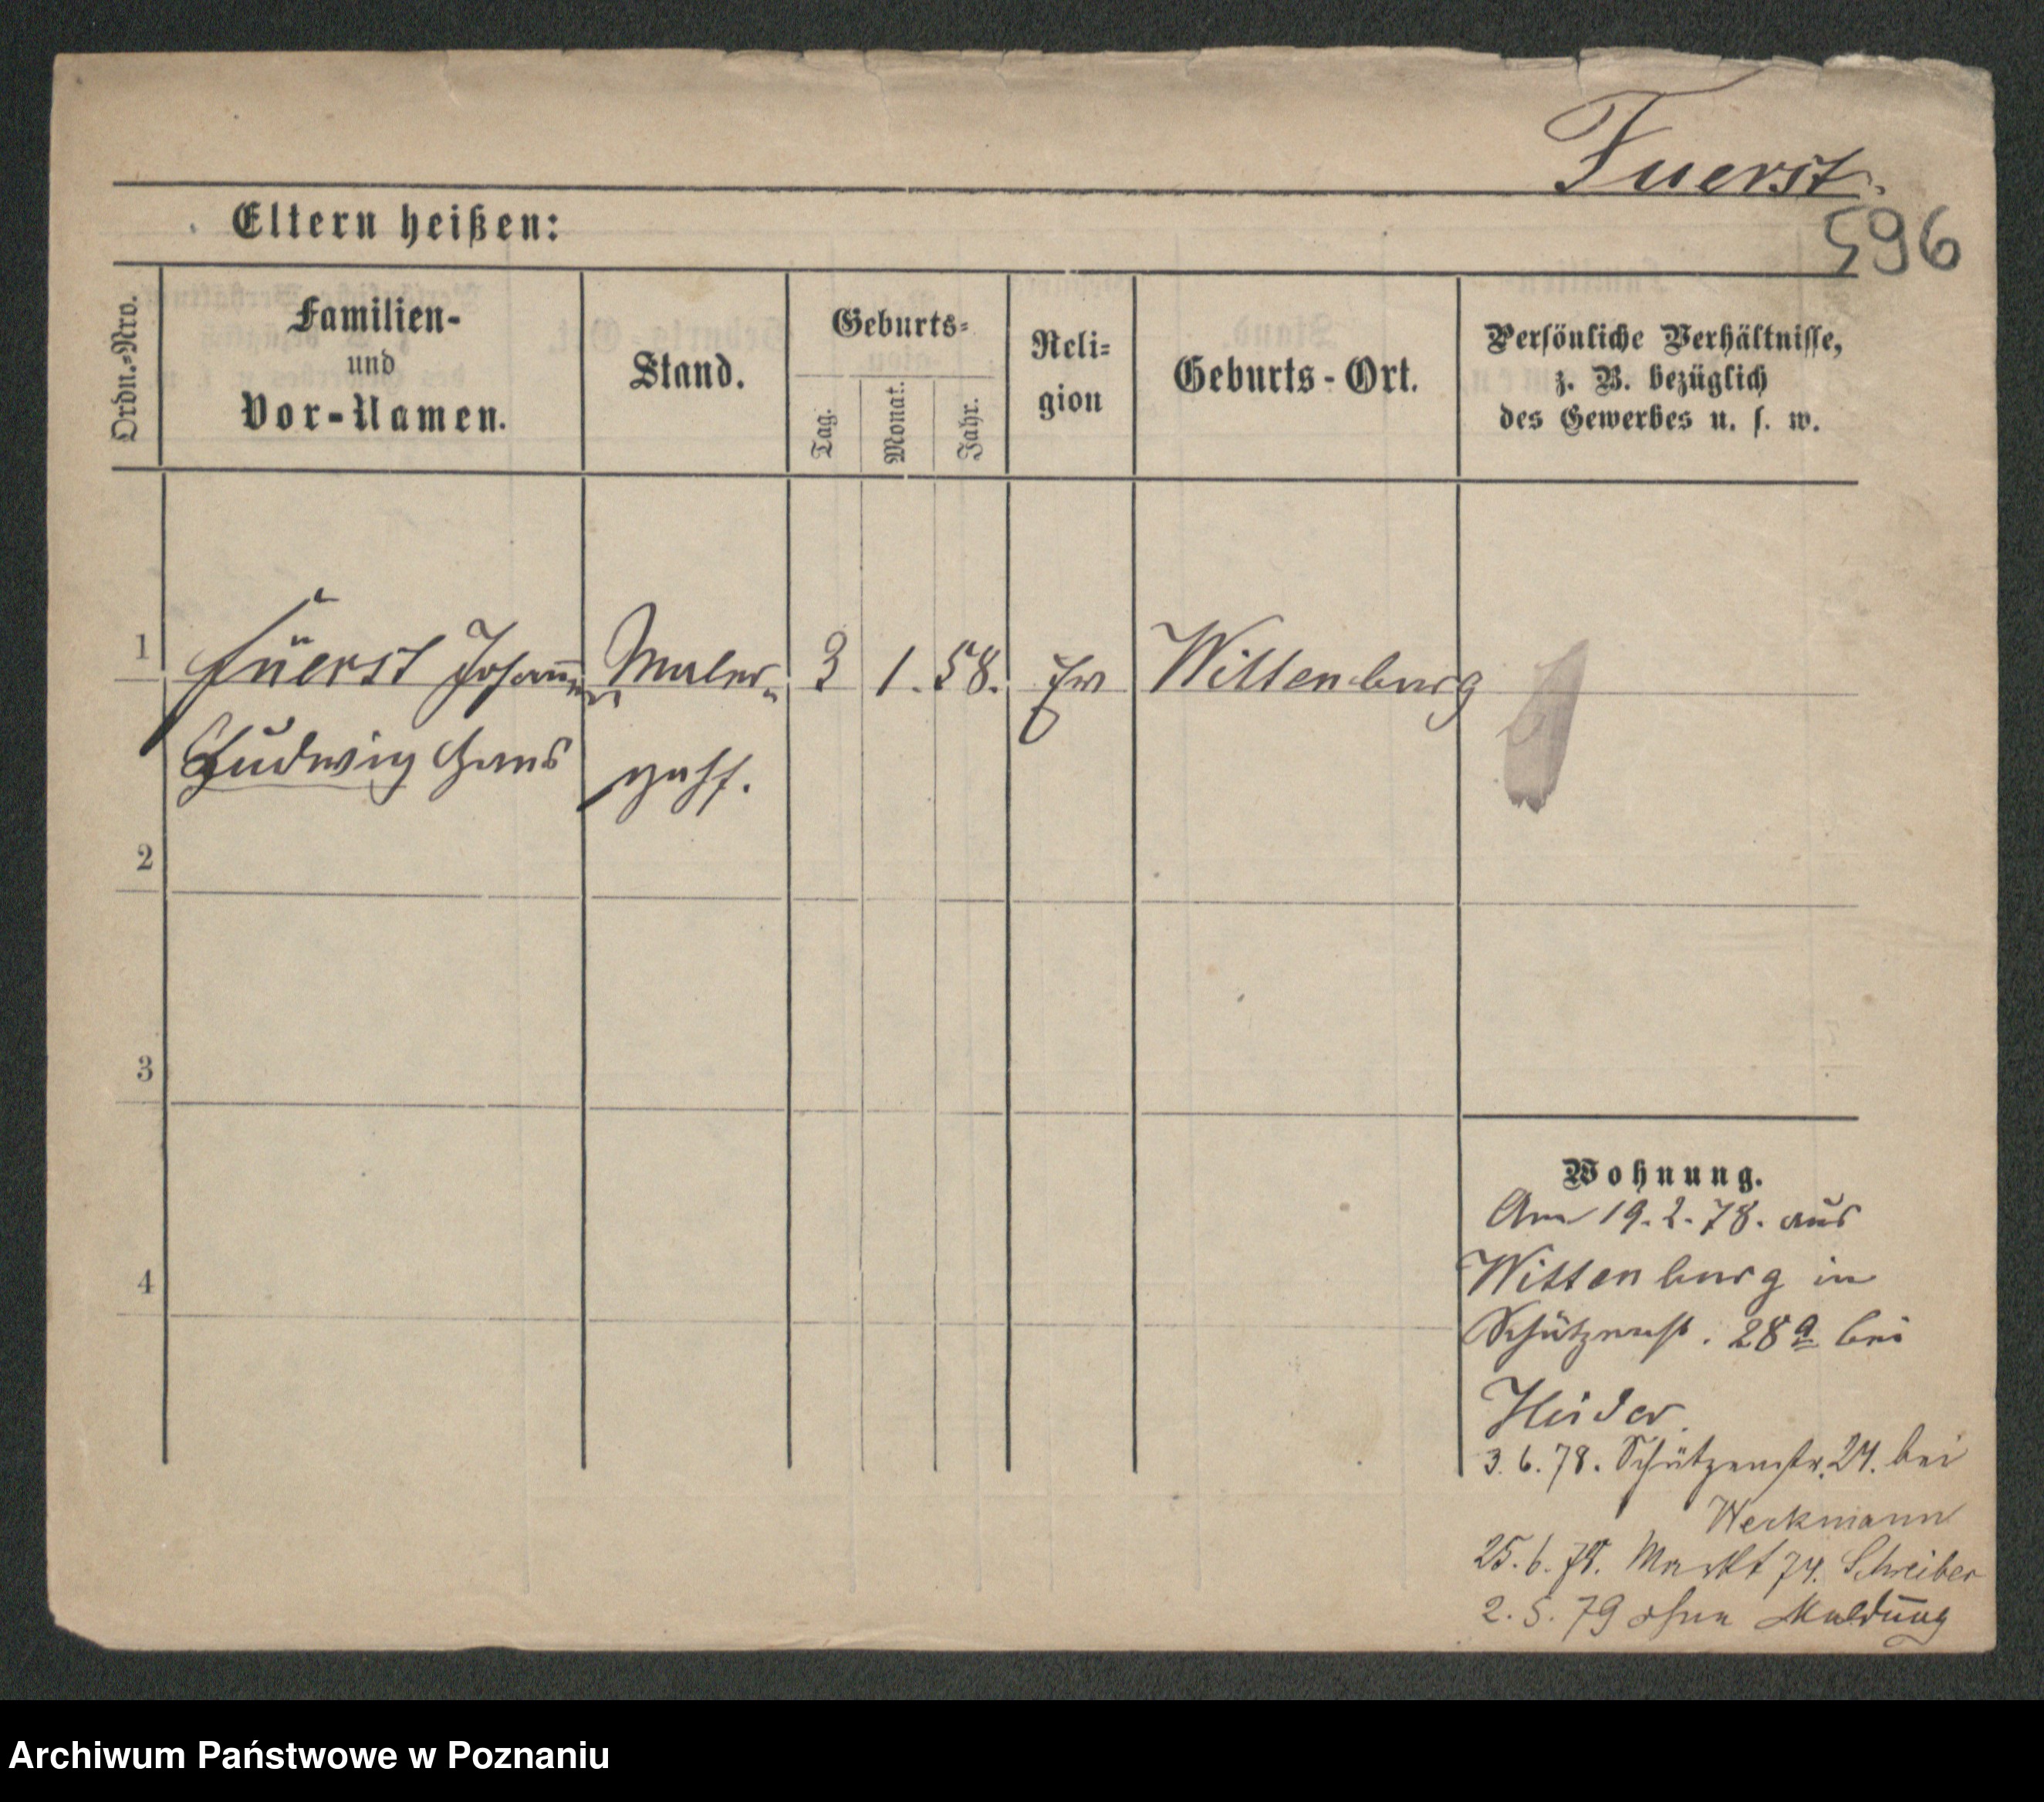 Fuerst.
596
Eltern heißen:
Ordn.=Nro.
Familien-
und
Vor-Namen.
Stand.
Geburts=
Tag.
Monat.
Jahr.
Reli=
gion
Geburts-Ort.
Persönliche Verhältnisse,
z. B. bezüglich
des Gewerbes u. s. w.
1
Füerst Johann
Maler
3
1.
58.
Wittenburg
Ludwig Hans
2
3
4
Wohnung.
Am 19.2.78. aus
Wittenburg in
Schützenst. 28a bei
Heider
3.6.78. Schützenstr. 24. bei
Weckmann
25.6.78. Markt 74. Schreiber
2.5.79 ohne Meldung
Archiwum Państwowe w Poznaniu